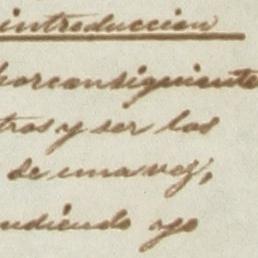 introduccion
porconsiguiente
tros y ser los
de una vez,
udiendo yo